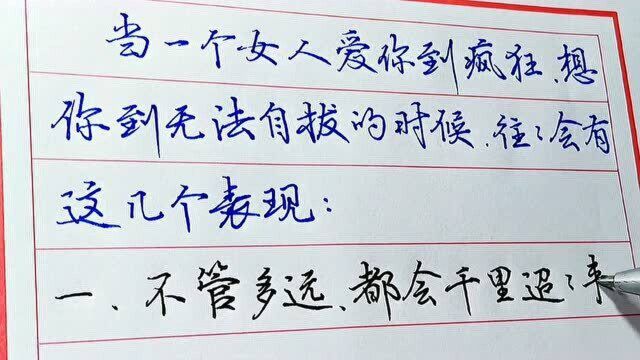 当一个女人爱你到疯狂、想
你到无法自拔的时候、往〻会有
这几个表现：
一、不管多远、都会千里迢〻来